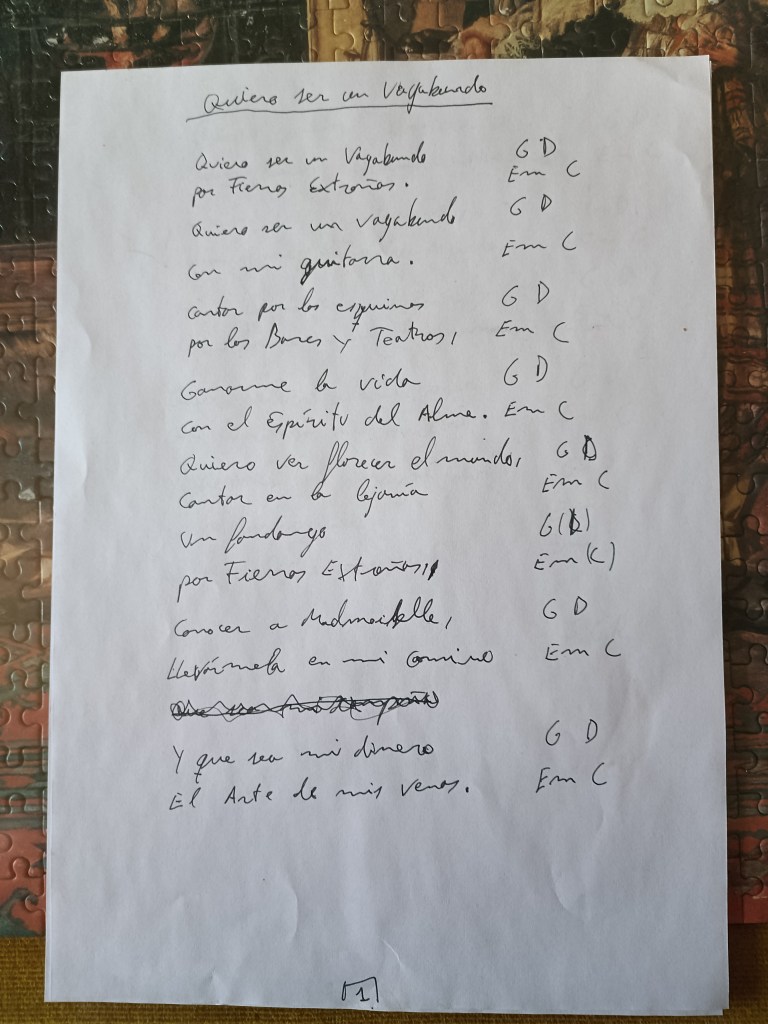 Quiero ser un Vagabundo
Quiero ser un Vagabundo G D
por Tierras Extrañas. Em C
Quiero ser un vagabundo G D
Con mi guitarra. Em C
Cantar por las esquinas G D
por los Bares y Teatros, Em C
Ganarme la vida G D
Con el Espíritu del Alma. Em C
Quiero ver florecer el mundo, G D
Cantar en la lejanía Em C
Un fandango G(D)
por Tierras Extrañas, Em(C)
Conocer a Madmoiselle, G D
Llevármela en mi Camino Em C
Y que sea mi dinero G D
El Arte de mis venas. Em C
1